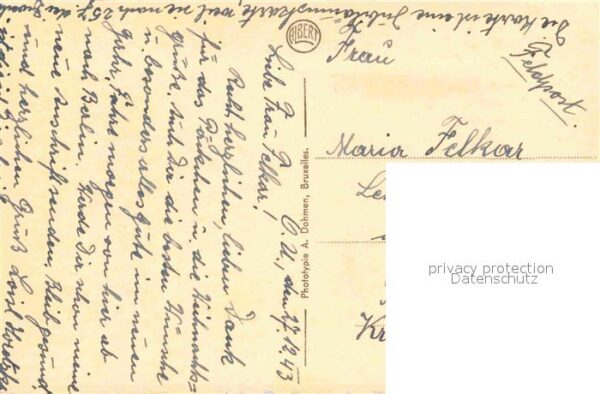 Die Karte ist eine Jubiläumskarte, weil sie nach 25 J. die
Feldpost.
Frau
Maria Felkar
Kr
O.U., den 27.12.43
Liebe Frau Felkar!
Recht herzlichen, lieben Dank
für das Päckchen u. die Weihnachts-
grüße. Auch Dir die besten Wünsche
u. besonders alles Gute im neuen
Jahr. Fahre morgen von hier ab
nach Berlin. Werde Dir schon meine
neue Anschrift senden. Bleib gesund
und herzlichen Gruß
ALBERT
Phototypie A. Dohmen, Bruxelles.
privacy protection
Datenschutz